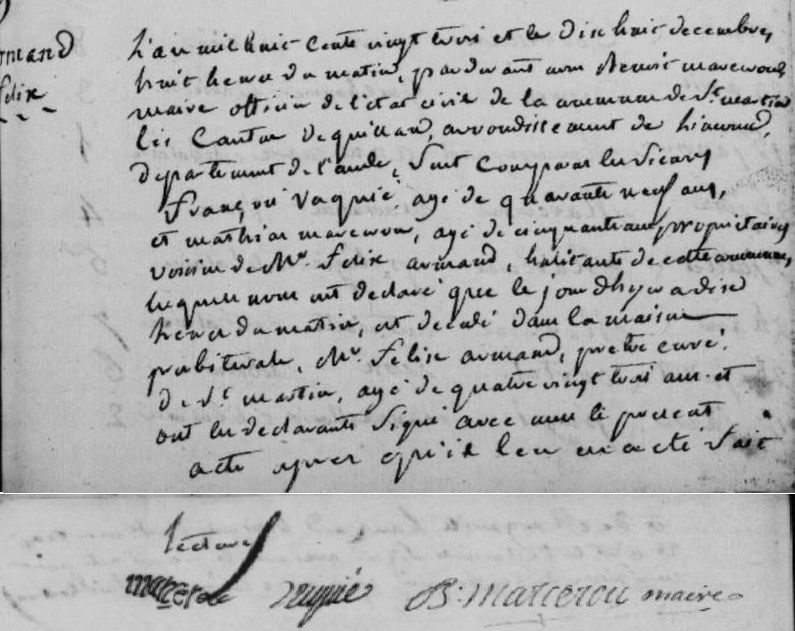 armand
felix
L'an mil huit cents vingt trois et le dix huit decembre,
huit heures du matin, pardevant nous Benoit marcerou
maire officier de l'etat civil de la commune de St martin
lis Canton de quillan, arrondissement de Limoux,
departement de l'aude, sont comparus les Sieurs
françois Vaquié, agé de quarante neuf ans,
et mathias marcerou, agé de cinquante ans, propriétaires
voisins de Mr. felix armand, habitants de cette commune,
lesquels nous ont declaré que le jour d'hyer a dix
heures du matin, est decedé dans la maison
presbiterale, Mr. felix armand, pretre curé
de St martin, agé de quatre vingt trois ans. et
ont les declarants signé avec nous le present
acte apres qu'il leu en a eté fait
lecture
marcerou Vaquié B. Marcerou maire